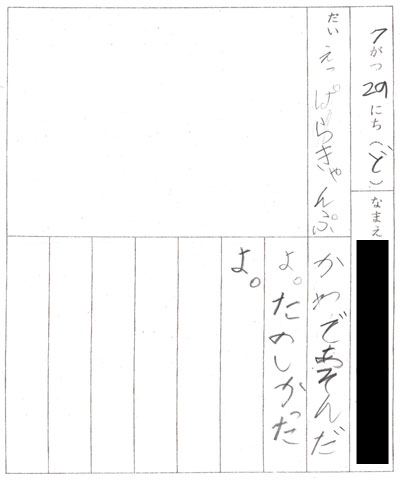 7がつ29にち(ど)なまえ
だいえっぱらきゃんぷ
かわであそんだ
よ。たのしかった
よ。